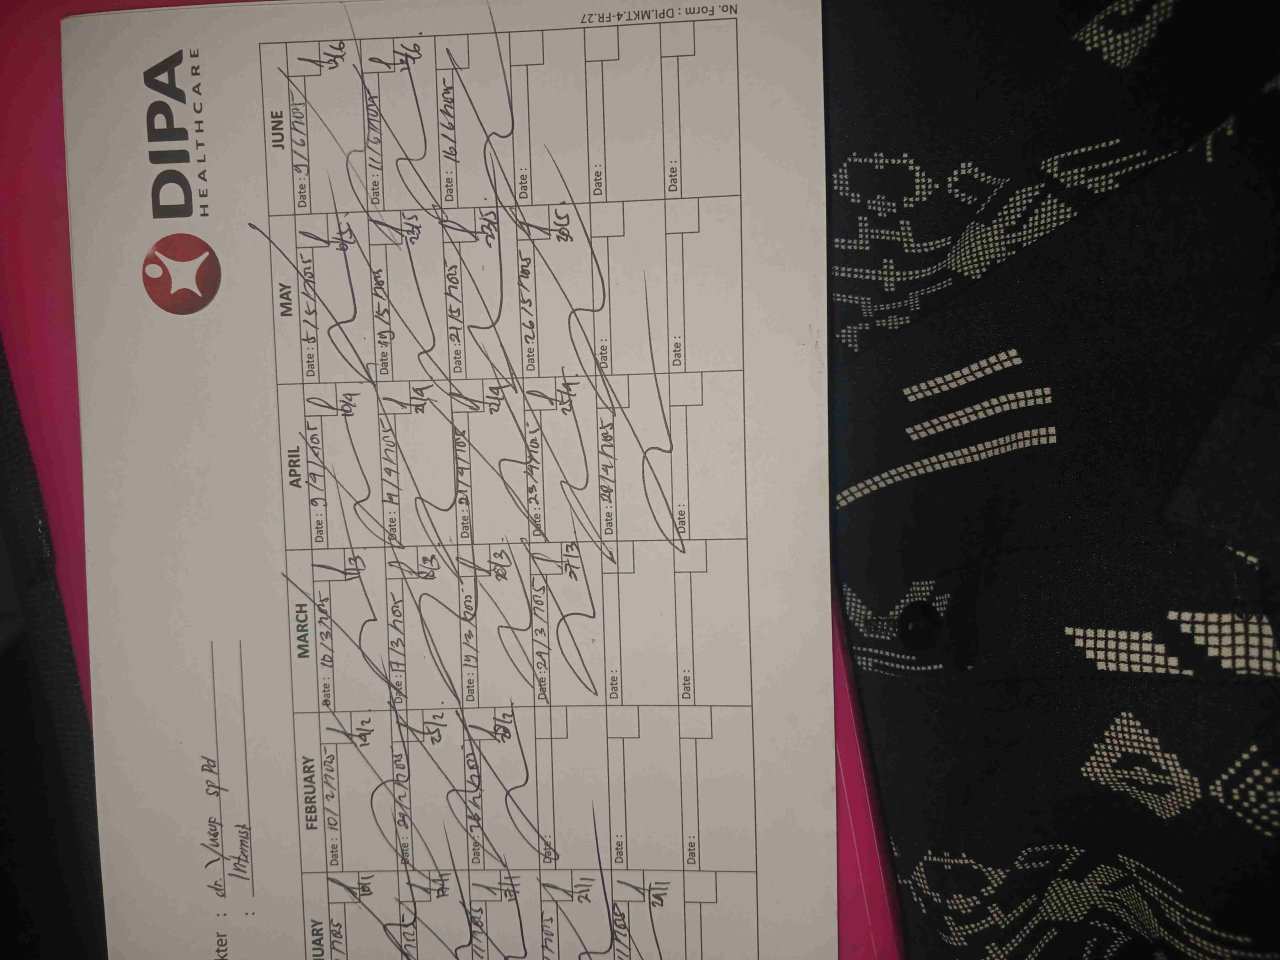 DIPA
HEALTHCARE
kter : dr. Yusup Sp Pd
: Internist
UARY FEBRUARY MARCH APRIL MAY JUNE
Date : 10/2/2025 Date : 10/3/2025 Date : 9/4/2025 Date : 5/5/2025 Date : 9/6/2025
10/1 14/2. 11/3 10/4 6/5. 13/6
Date : Date : 17/3/2025 Date : 14/4/2025 Date : 19/5/2025 Date : 11/6/2025
17/1 25/2. 18/3 21/4 23/5 13/6.
Date : 26/2/2025 Date : 19/3/2025 Date : 21/4/2025 Date : 21/5/2025 Date : 16/6/2025
17/1 28/2 20/3. 22/4 23/5.
Date : Date : 24/3/2025 Date : 23/4/2025 Date : 26/5/2025 Date :
21/1 27/3 25/4. 30/5.
Date : Date : Date : 28/4/2025 Date : Date :
24/1
Date : Date : Date : Date : Date :
No. Form : DPI.MKT.4-FR.27